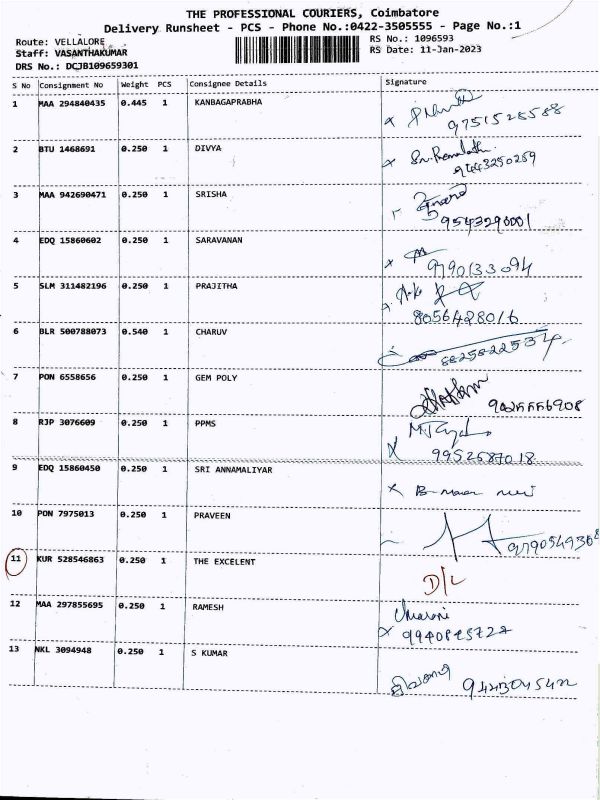 THE PROFESSIONAL COURIERS, Coimbatore
Delivery Runsheet - PCS - Phone No.:0422-3505555 - Page No.:1
Route: VELLALORE
Staff: VASANTHAKUMAR
DRS No.: DCJB109659301
RS No.: 1096593
RS Date: 11-Jan-2023
S No Consignment No Weight PCS Consignee Details Signature
1 MAA 294840435 0.445 1 KANBAGAPRABHA
9751528588
2 BTU 1468691 0.250 1 DIVYA
9443250259
3 MAA 942690471 0.250 1 SRISHA
9543290001
4 EDQ 15860602 0.250 1 SARAVANAN
9790133094
5 SLM 311482196 0.250 1 PRAJITHA
8056428016
6 BLR 500788073 0.540 1 CHARUV
8825822534
7 PON 6558656 0.250 1 GEM POLY
8 RJP 3076609 0.250 1 PPMS
9952687018
9 EDQ 15860450 0.250 1 SRI ANNAMALIYAR
10 PON 7975013 0.250 1 PRAVEEN
11 KUR 528546863 0.250 1 THE EXCELENT
D/L
12 MAA 297855695 0.250 1 RAMESH
13 NKL 3094948 0.250 1 S KUMAR